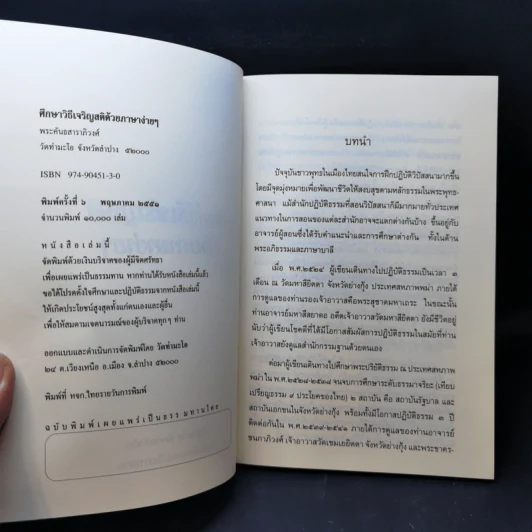 ศึกษาวิธีเจริญสติด้วยภาษาง่ายๆ
พระคันธสาราภิวงศ์
วัดท่ามะโอ จังหวัดลำปาง ๕๒๐๐๐
ISBN 974-90451-3-0
พิมพ์ครั้งที่ ๖ พฤษภาคม ๒๕๕๑
จำนวนพิมพ์ ๑๐,๐๐๐ เล่ม
ห นั ง สื อ เ ล่ ม นี้
จัดพิมพ์ด้วยเงินบริจาคของผู้มีจิตศรัทธา
เพื่อเผยแพร่เป็นธรรมทาน หากท่านได้รับหนังสือเล่มนี้แล้ว
ขอได้โปรดตั้งใจศึกษาและปฏิบัติธรรมจากหนังสือเล่มนี้
ให้เกิดประโยชน์สูงสุดทั้งแก่ตนเองและผู้อื่น
เพื่อให้สมตามเจตนารมณ์ของผู้บริจาคทุก ๆ ท่าน
ออกแบบและดำเนินการจัดพิมพ์โดย วัดท่ามะโอ
๒๔ ต.เวียงเหนือ อ.เมือง จ.ลำปาง ๕๒๐๐๐
พิมพ์ที่ หจก.ไทยรายวันการพิมพ์
ฉ บั บ พิ ม พ์ เ ผ ย แ พ ร่ เ ป็ น ธ ร ร ม ท า น โ ด ย
บทนำ
ปัจจุบันชาวพุทธในเมืองไทยสนใจการฝึกปฏิบัติวิปัสสนามากขึ้น
โดยมีจุดมุ่งหมายเพื่อพัฒนาชีวิตให้สงบสุขตามหลักธรรมในพระพุทธ-
ศาสนา แม้สำนักปฏิบัติธรรมที่สอนวิปัสสนาก็มีมากมายทั่วประเทศ
แนวทางในการสอนของแต่ละสำนักอาจจะแตกต่างกันบ้าง ขึ้นอยู่กับ
อาจารย์ผู้สอนซึ่งได้รับคำแนะนำและการศึกษาต่างกัน ทั้งในด้าน
พระอภิธรรมและภาษาบาลี
เมื่อ พ.ศ.๒๕๒๔ ผู้เขียนเดินทางไปปฏิบัติธรรมเป็นเวลา ๓
เดือน ณ วัดมหาสีย่างกุ้ง จังหวัดย่างกุ้ง ประเทศสหภาพพม่า ภายใต้
การดูแลของท่านรองเจ้าอาวาสคือพระสุชาตมหาเถระ ในขณะนั้น
ท่านอาจารย์มหาสีสยาดอ อดีตเจ้าอาวาสวัดมหาสีย่างกุ้ง ยังมีชีวิตอยู่
นับว่าผู้เขียนโชคดีที่ได้มีโอกาสสัมผัสการปฏิบัติธรรมในสมัยที่ท่าน
เจ้าอาวาสยังดูแลสำนักกรรมฐานด้วยตนเอง
ต่อมาผู้เขียนเดินทางไปศึกษาพระปริยัติธรรม ณ ประเทศสหภาพ
พม่าใน พ.ศ.๒๕๒๘-๒๕๓๘ จนจบการศึกษาระดับธรรมาจริยะ (เทียบ
เปรียญธรรม ๙ ประโยคของไทย) ๒ สถาบัน คือ สถาบันรัฐบาล และ
สถาบันเอกชนในจังหวัดย่างกุ้ง พร้อมทั้งมีโอกาสปฏิบัติธรรม ๓ ปี
ติดต่อกันใน พ.ศ.๒๕๓๙-๒๕๔๑ ภายใต้การดูแลของท่านอาจารย์
ชนกาภิวงศ์ เจ้าอาวาสวัดเชมเยยิตตา จังหวัดย่างกุ้ง และพระชาคร-